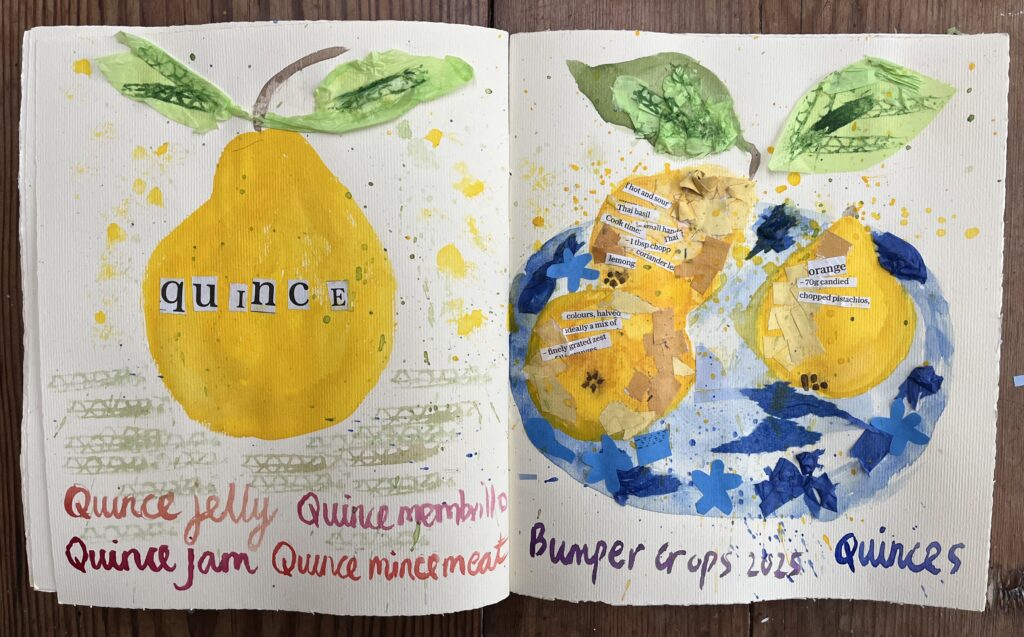 quince
Quince jelly Quince membrillo
Quince jam Quince mincemeat
hot and sour
Thai basil
small hand
Cook time: Thai
– 1 tbsp chopp
coriander le
lemong
orange
– 70g candied
chopped pistachios,
colours, halved
ideally a mix of
– finely grated zest
oranges
Bumper crops 2025 Quinces